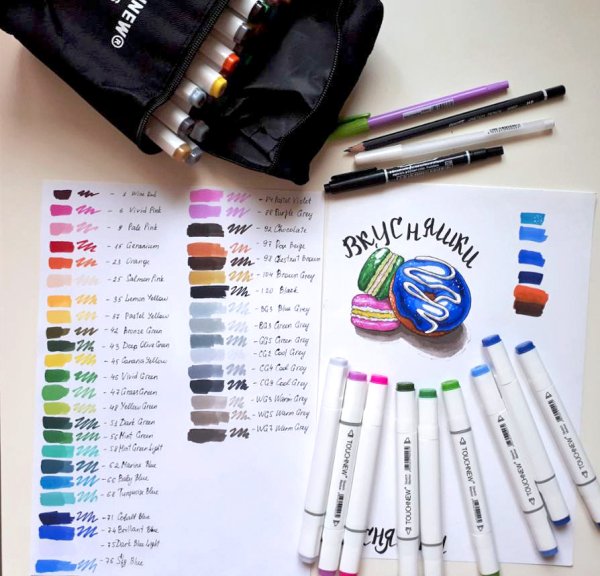 HNEW®
- 1 Wine Red
- 6 Vivid Pink
- 9 Pale Pink
- 15 Geranium
- 23 Orange
- 25 Salmon Pink
- 35 Lemon Yellow
- 37 Pastel Yellow
- 42 Bronze Green
- 43 Deep Olive Green
- 45 Canaria Yellow
- 46 Vivid Green
- 47 Grass Green
- 48 Yellow Green
- 50 Dark Green
- 56 Mint Green
- 58 Mint Green Light
- 62 Marine Blue
- 66 Baby Blue
- 68 Turquoise Blue
- 71 Cobalt Blue
- 74 Brilliant Blue
- 75 Dark Blue Light
- 76 Sky Blue
- 84 Pastel Violet
- 88 Purple Grey
- 92 Chocolate
- 97 Rose Beige
- 98 Chestnut Brown
- 104 Brown Grey
- 120 Black
- BG3 Blue Grey
- GG3 Green Grey
- GG5 Green Grey
- CG2 Cool Grey
- CG4 Cool Grey
- CG9 Cool Grey
- WG3 Warm Grey
- WG5 Warm Grey
- WG7 Warm Grey
ВКУСНЯШКИ
TOUCHNEW
TOUCHNEW
TOUCHNEW
TOUCHNEW
TOUCHNEW